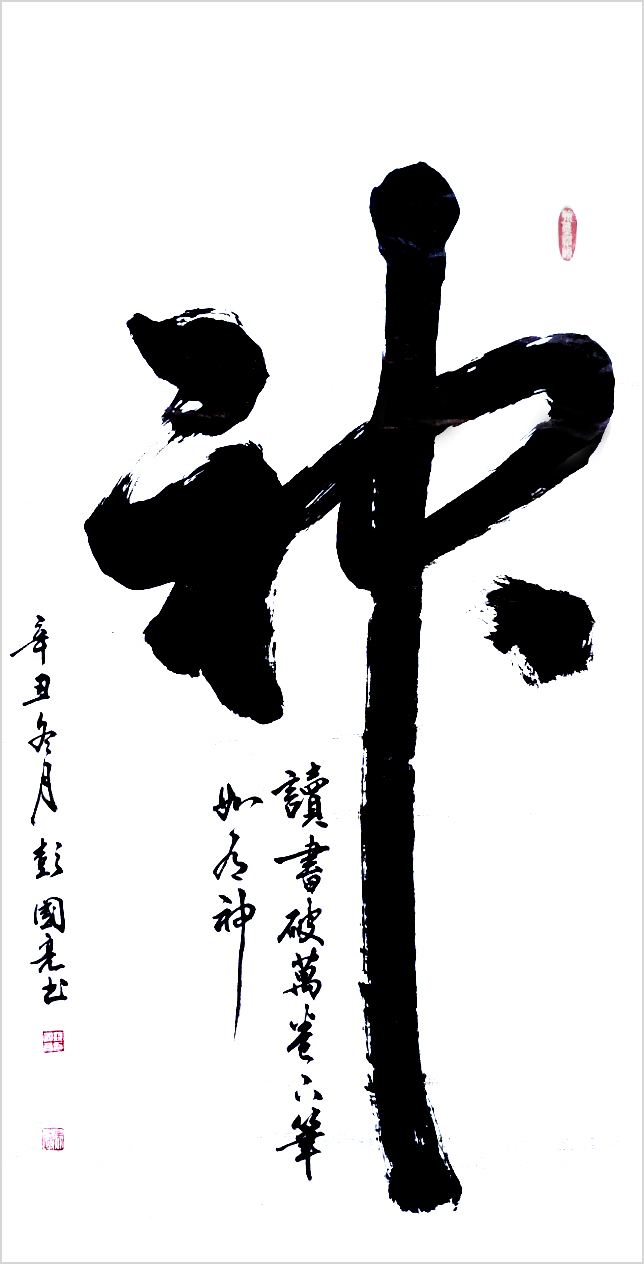 神
讀書破萬卷下筆
如有神
辛丑冬月彭國亮书